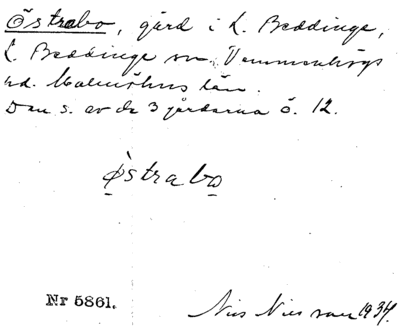 Östrabo, gård i L. Beddinge,
L. Beddinge sn. Vemmenhögs
hd. Malmöhus län.
Den s. av de 3 gårdarna Ö. 12.
 östrabo
Nr 5861.
Nils Nilsson 1934.